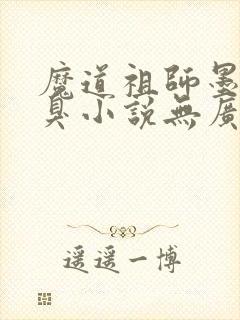 魔道祖師墨
臭小說無廣
遥遥一博